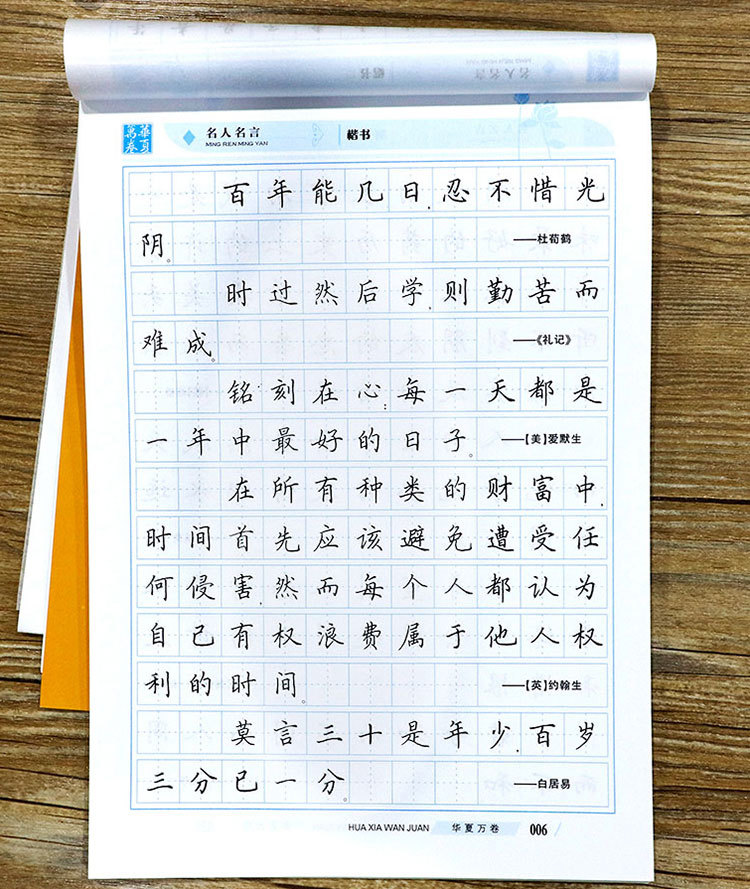 名人名言
楷书
華夏萬卷
名人名言
MING REN MING YAN
楷书
百年能几日,忍不惜光
阴。 ——杜荀鹤
时过然后学,则勤苦而
难成。 ——《礼记》
铭刻在心:每一天都是
一年中最好的日子。 ——【美】爱默生
在所有种类的财富中,
时间首先应该避免遭受任
何侵害,然而每个人都认为
自己有权浪费属于他人权
利的时间。 ——【英】约翰生
莫言三十是年少,百岁
三分已一分。 ——白居易
HUA XIA WAN JUAN 华夏万卷 006